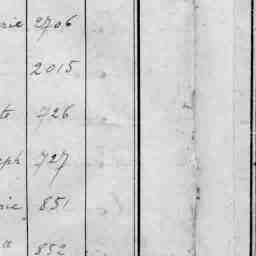 rie 2706
2015
te 726
eph 727
rie 851
a 852